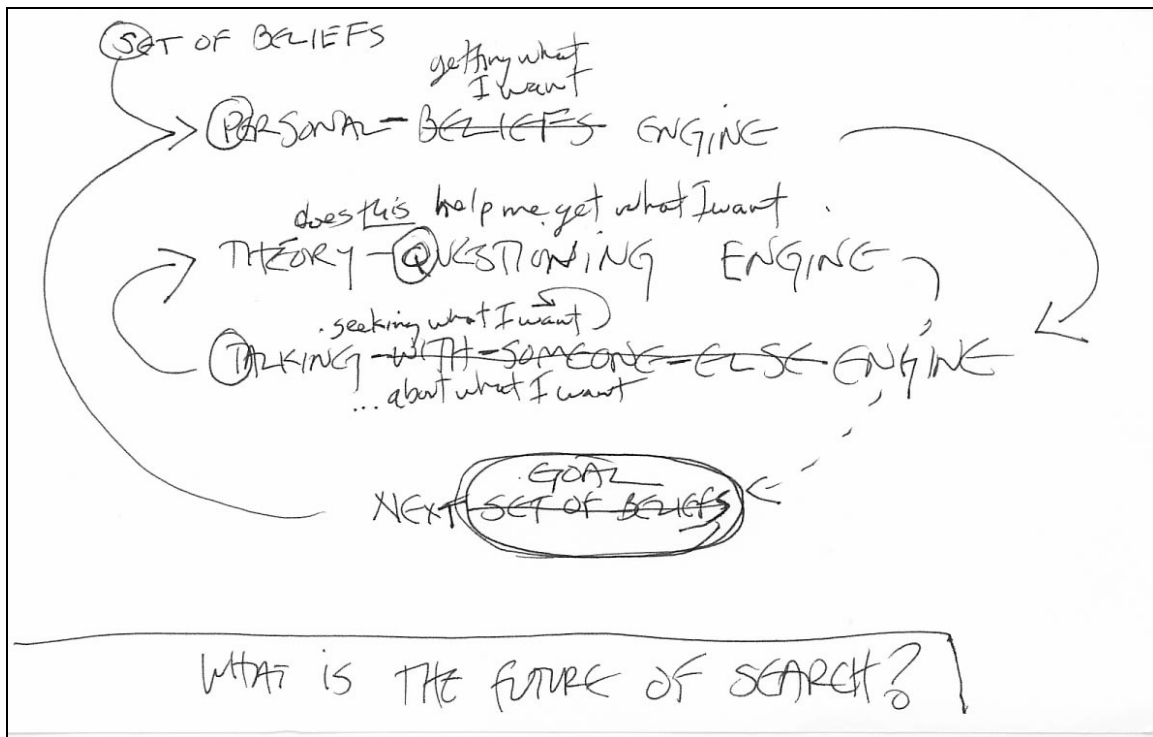 SET OF BELIEFS
getting what
I want
PERSONAL-BELIEFS ENGINE
does this help me get what I want.
THEORY-QUESTIONING ENGINE
.seeking what I want
TALKING-WITH-SOMEONE-ELSE ENGINE
...about what I want
GOAL
NEXT SET OF BELIEFS
WHAT IS THE FUTURE OF SEARCH?